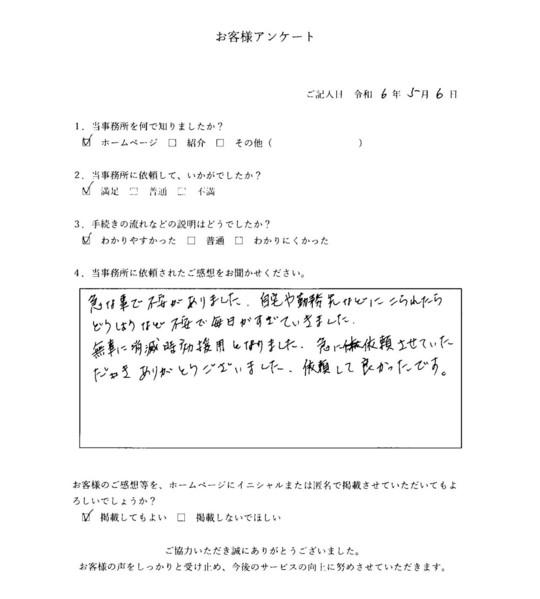 お客様アンケート
ご記入日 令和 6 年 5 月 6 日
1．当事務所を何で知りましたか？
☑ ホームページ □ 紹介 □ その他（ ）
2．当事務所に依頼して、いかがでしたか？
☑ 満足 □ 普通 □ 不満
3．手続きの流れなどの説明はどうでしたか？
☑ わかりやすかった □ 普通 □ わかりにくかった
4．当事務所に依頼されたご感想をお聞かせください。
急な事で不安がありました。自宅や勤務先などにこられたら
どうしようなど不安で毎日がすぎていきました。
無事に消滅時効援用となりました。急に依頼させていた
だききありがとうございました。依頼して良かったです。
お客様のご感想等を、ホームページにイニシャルまたは匿名で掲載させていただいてもよ
ろしいでしょうか？
☑ 掲載してもよい □ 掲載しないでほしい
ご協力いただき誠にありがとうございました。
お客様の声をしっかりと受け止め、今後のサービスの向上に努めさせていただきます。